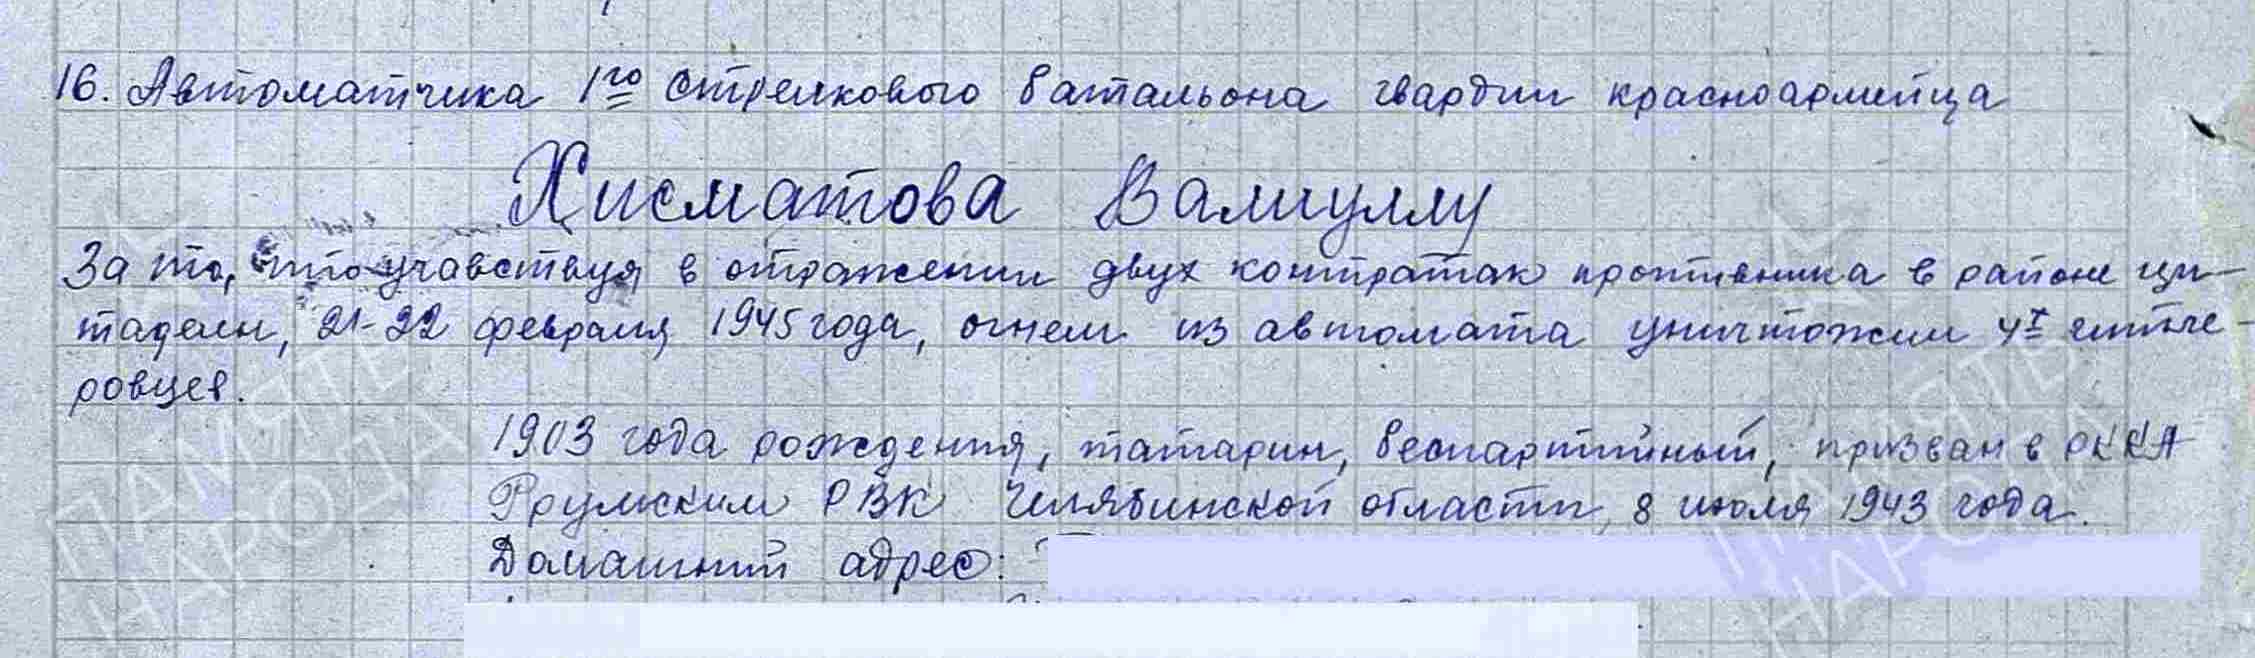 16. Автоматчика 1го стрелкового батальона гвардии красноармейца
Хисматова Валиуллу
За то, что учавствуя в отражении двух контратак противника в районе ци-
тадели, 21-22 февраля 1945 года, огнем из автомата уничтожил 4х гитле-
ровцев.
1903 года рождения, татарин, беспартийный, призван в РККА
РВК Челябинской области, 8 июля 1943 года.
Домашний адрес:
ПАМЯТЬ
НАРОДА
ПАМЯТЬ
НАРОДА